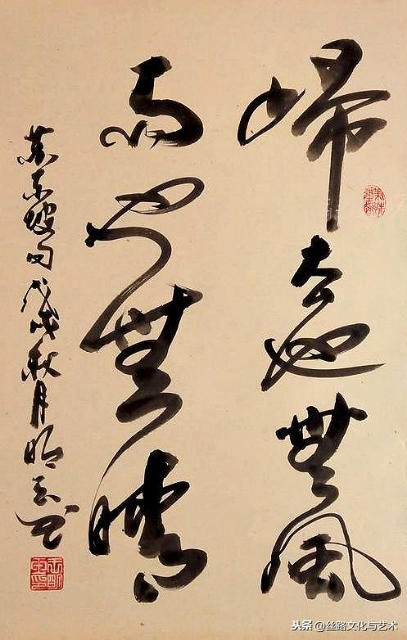 歸去也無風
雨也無晴
蘇东坡句戊戌秋月明
头条 @丝路文化与艺术